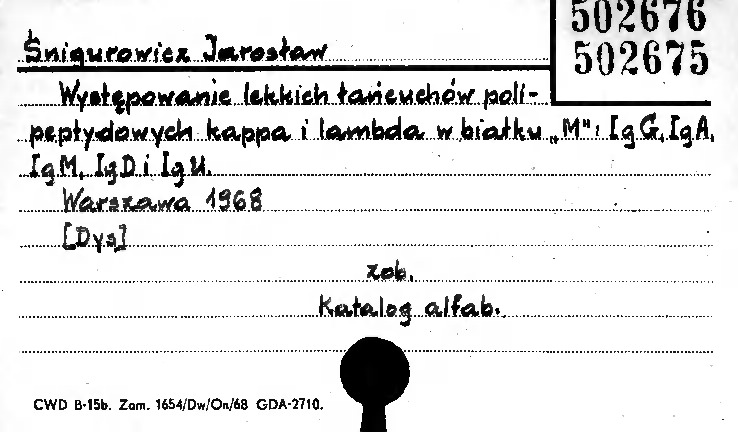 502676
502675
Śnigurowicz Jarosław
Występowanie lekkich łańcuchów poli-
peptydowych kappa i lambda w białku „M": IgG, IgA,
IgM, IgD i IgU.
Warszawa 1968
[Dys]
zob.
Katalog alfab.
CWD B-15b. Zam. 1654/Dw/On/68 GDA-2710.